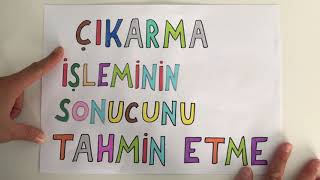 ÇIKARMA
İŞLEMİNİN
SONUCUNU
TAHMİN ETME